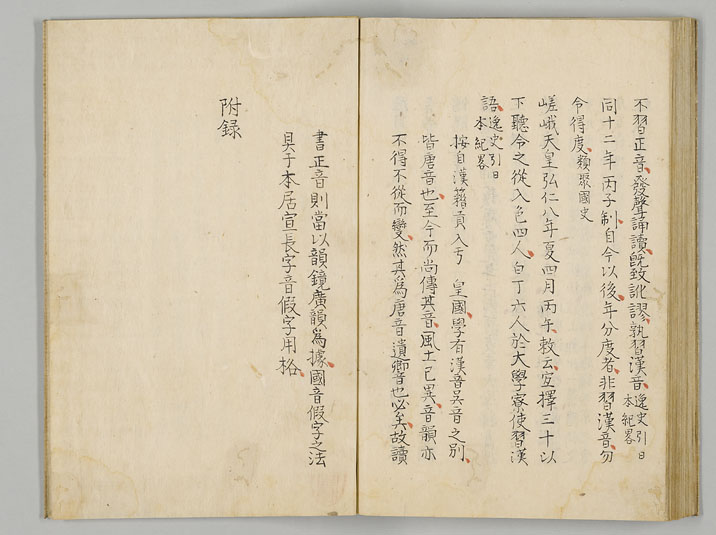 不習正音、發聲誦讀、既致訛謬、熟習漢音、逸史引日本紀畧
同十二年丙子制、自今以後、年分度者、非習漢音、勿
令得度、類聚國史
嵯峨天皇弘仁八年夏四月丙午、敕云、宜擇三十以
下聽令之從入色四人、白丁六人、於大學寮使習漢
語、逸史引日本紀畧
按自漢籍貢入于 皇國、學有漢音吳音之別、
皆唐音也、至今而尚傳其音、風土已異、音韻亦
不得不從而變、然其為唐音遺響也必矣、故讀
書正音則當以韻鏡廣韻為據、國音假字之法
具于本居宣長字音假字用格、
附録